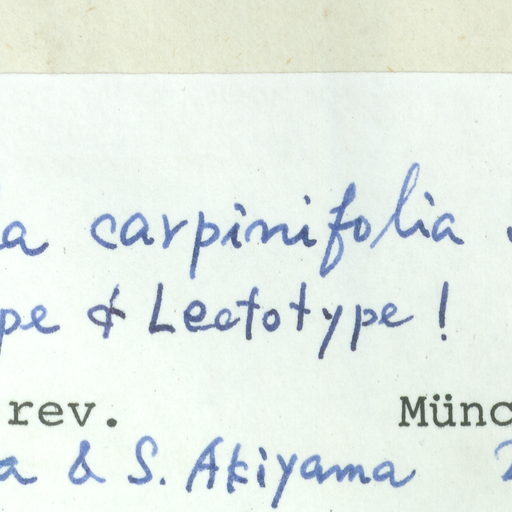 a carpinifolia
pe & Lectotype!
rev. Münc
a & S. Akiyama